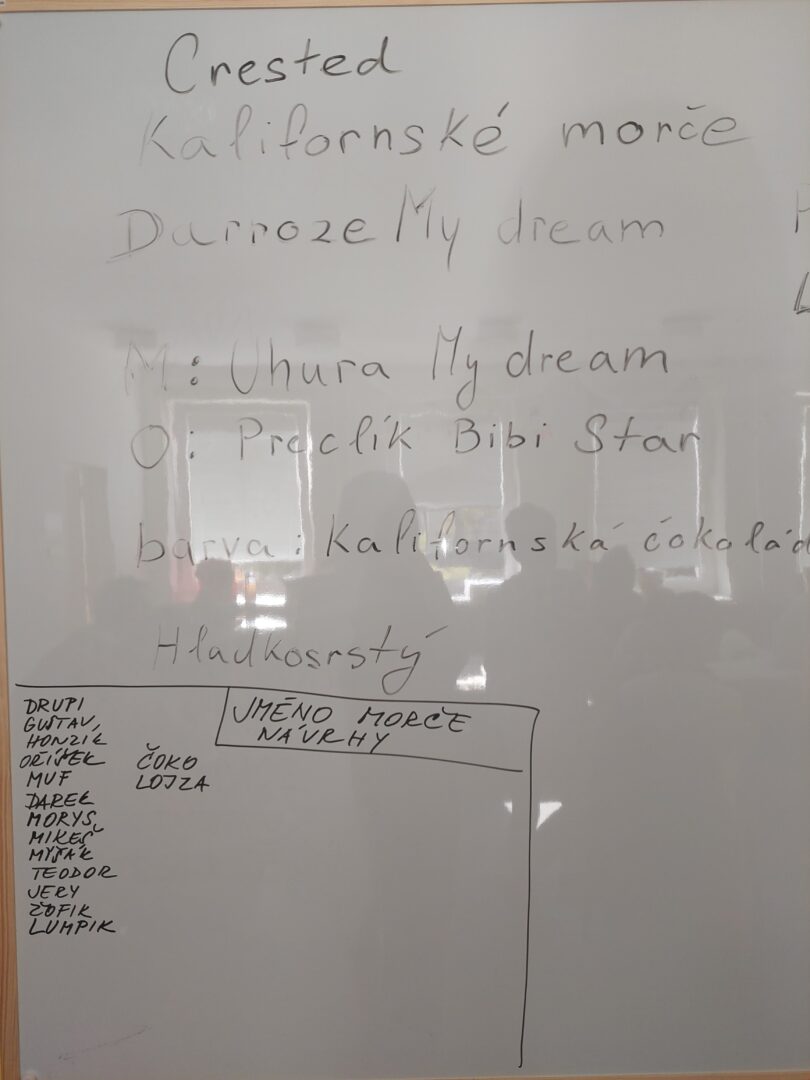 Crested
Kalifornské morče
Darroze My dream
M: Uhura My dream
O: Preclík Bibi Star
barva: Kalifornská čokolád
Hladkosrstý
JMÉNO MORČE
NÁVRHY
DRUPI
GUSTAV,
HONZIK
OŘÍŠEK
MUF
DAREK
MORYS,
MIKEŠ
MYŠÁK
TEODOR
JERY
ŽOFIK
LUMPIK
ČOKO
LOJZA